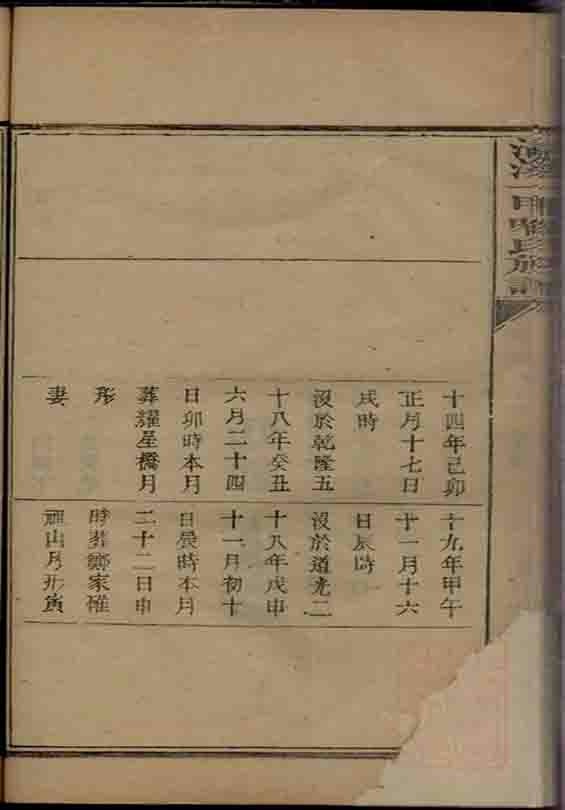 十四年己卯
正月十七日
戌時
沒於乾隆五
十八年癸丑
六月二十四
日卯時本月
葬耀星橋月
形
妻
十九年甲午
十一月十六
日辰時
沒於道光二
十八年戊申
十一月初十
日辰時本月
二十二日申
時葬鄒家碓
山月形寅